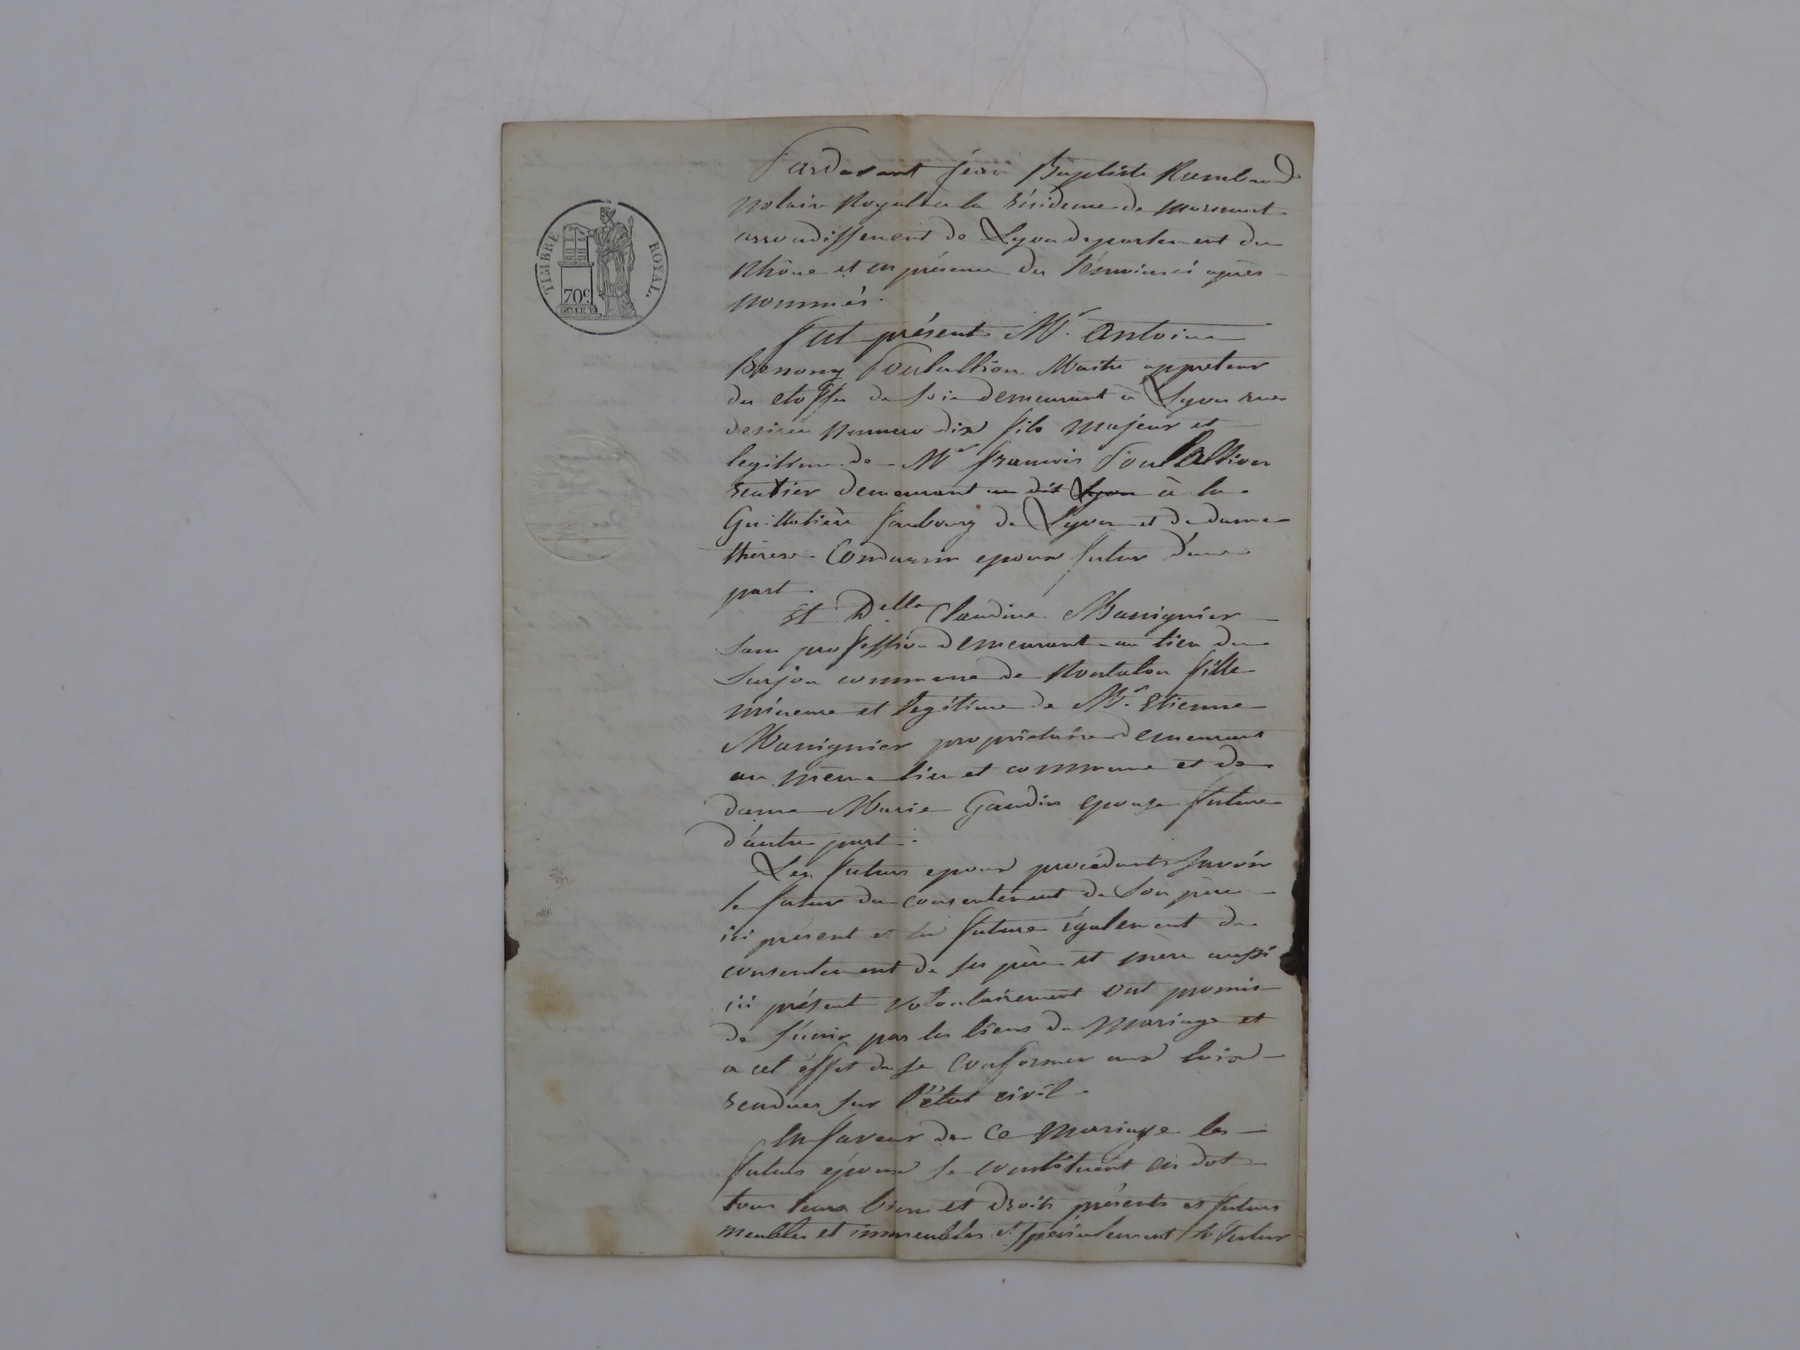 TIMBRE ROYAL
70c
Pardevant jean Baptiste Rambaud
Notaire Royal à la résidence de Mornant
arrondissement de Lyon departement du
Rhône et en présence des témoins ci après
nommés.
fut présent Mr. Antoine
Benony Maitre appreteur
des etoffes de soie demeurant à Lyon rue
numero dix fils majeur et
legitime de Mr françois
rentier demeurant au dit Lyon à la
Guillotière faubourg de Lyon et de dame
thérese epoux futur d'une
part.
Et Delle Claudine Massignier
sans profession demeurant au lieu de
Surjon commune de fille
mineure et legitime de Mr. Etienne
Massignier propriétaire demeurant
au même lieu et commune et de
dame Marie Gaudin epouse future
d'autre part.
Les futurs epoux procédants savoir
le futur du consentement de son père
ici présent et la future également du
consentement de ses père et mère aussi
ici présent volontairement ont promis
de s'unir par les liens du mariage et
a cet éffet de se conformer aux loix
rendues sur l'état civil.
En faveur de ce mariage les
futurs époux se constituent en dot
tous leurs biens et droits présents et futurs
meubles et immeubles et spécialement le futur